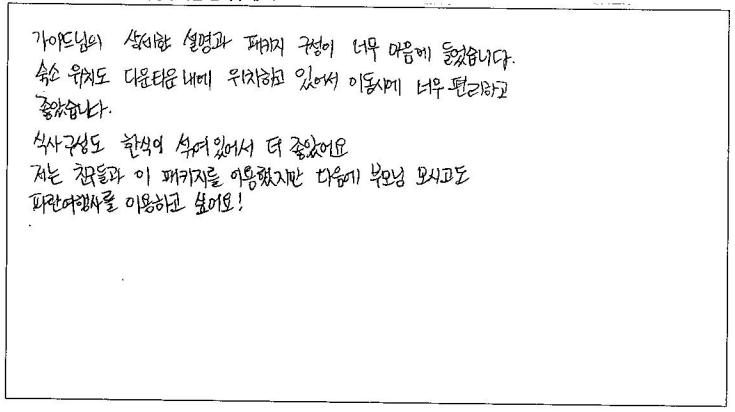 가이드님의 상세한 설명과 패키지 구성이 너무 마음에 들었습니다.
숙소 위치도 다운타운내에 위치하고 있어서 이동시에 너무 편리하고
좋았습니다.
식사구성도 한식이 섞여있어서 더 좋았어요
저는 친구들과 이 패키지를 이용했지만 다음에 부모님 모시고도
파란여행사를 이용하고 싶어요!